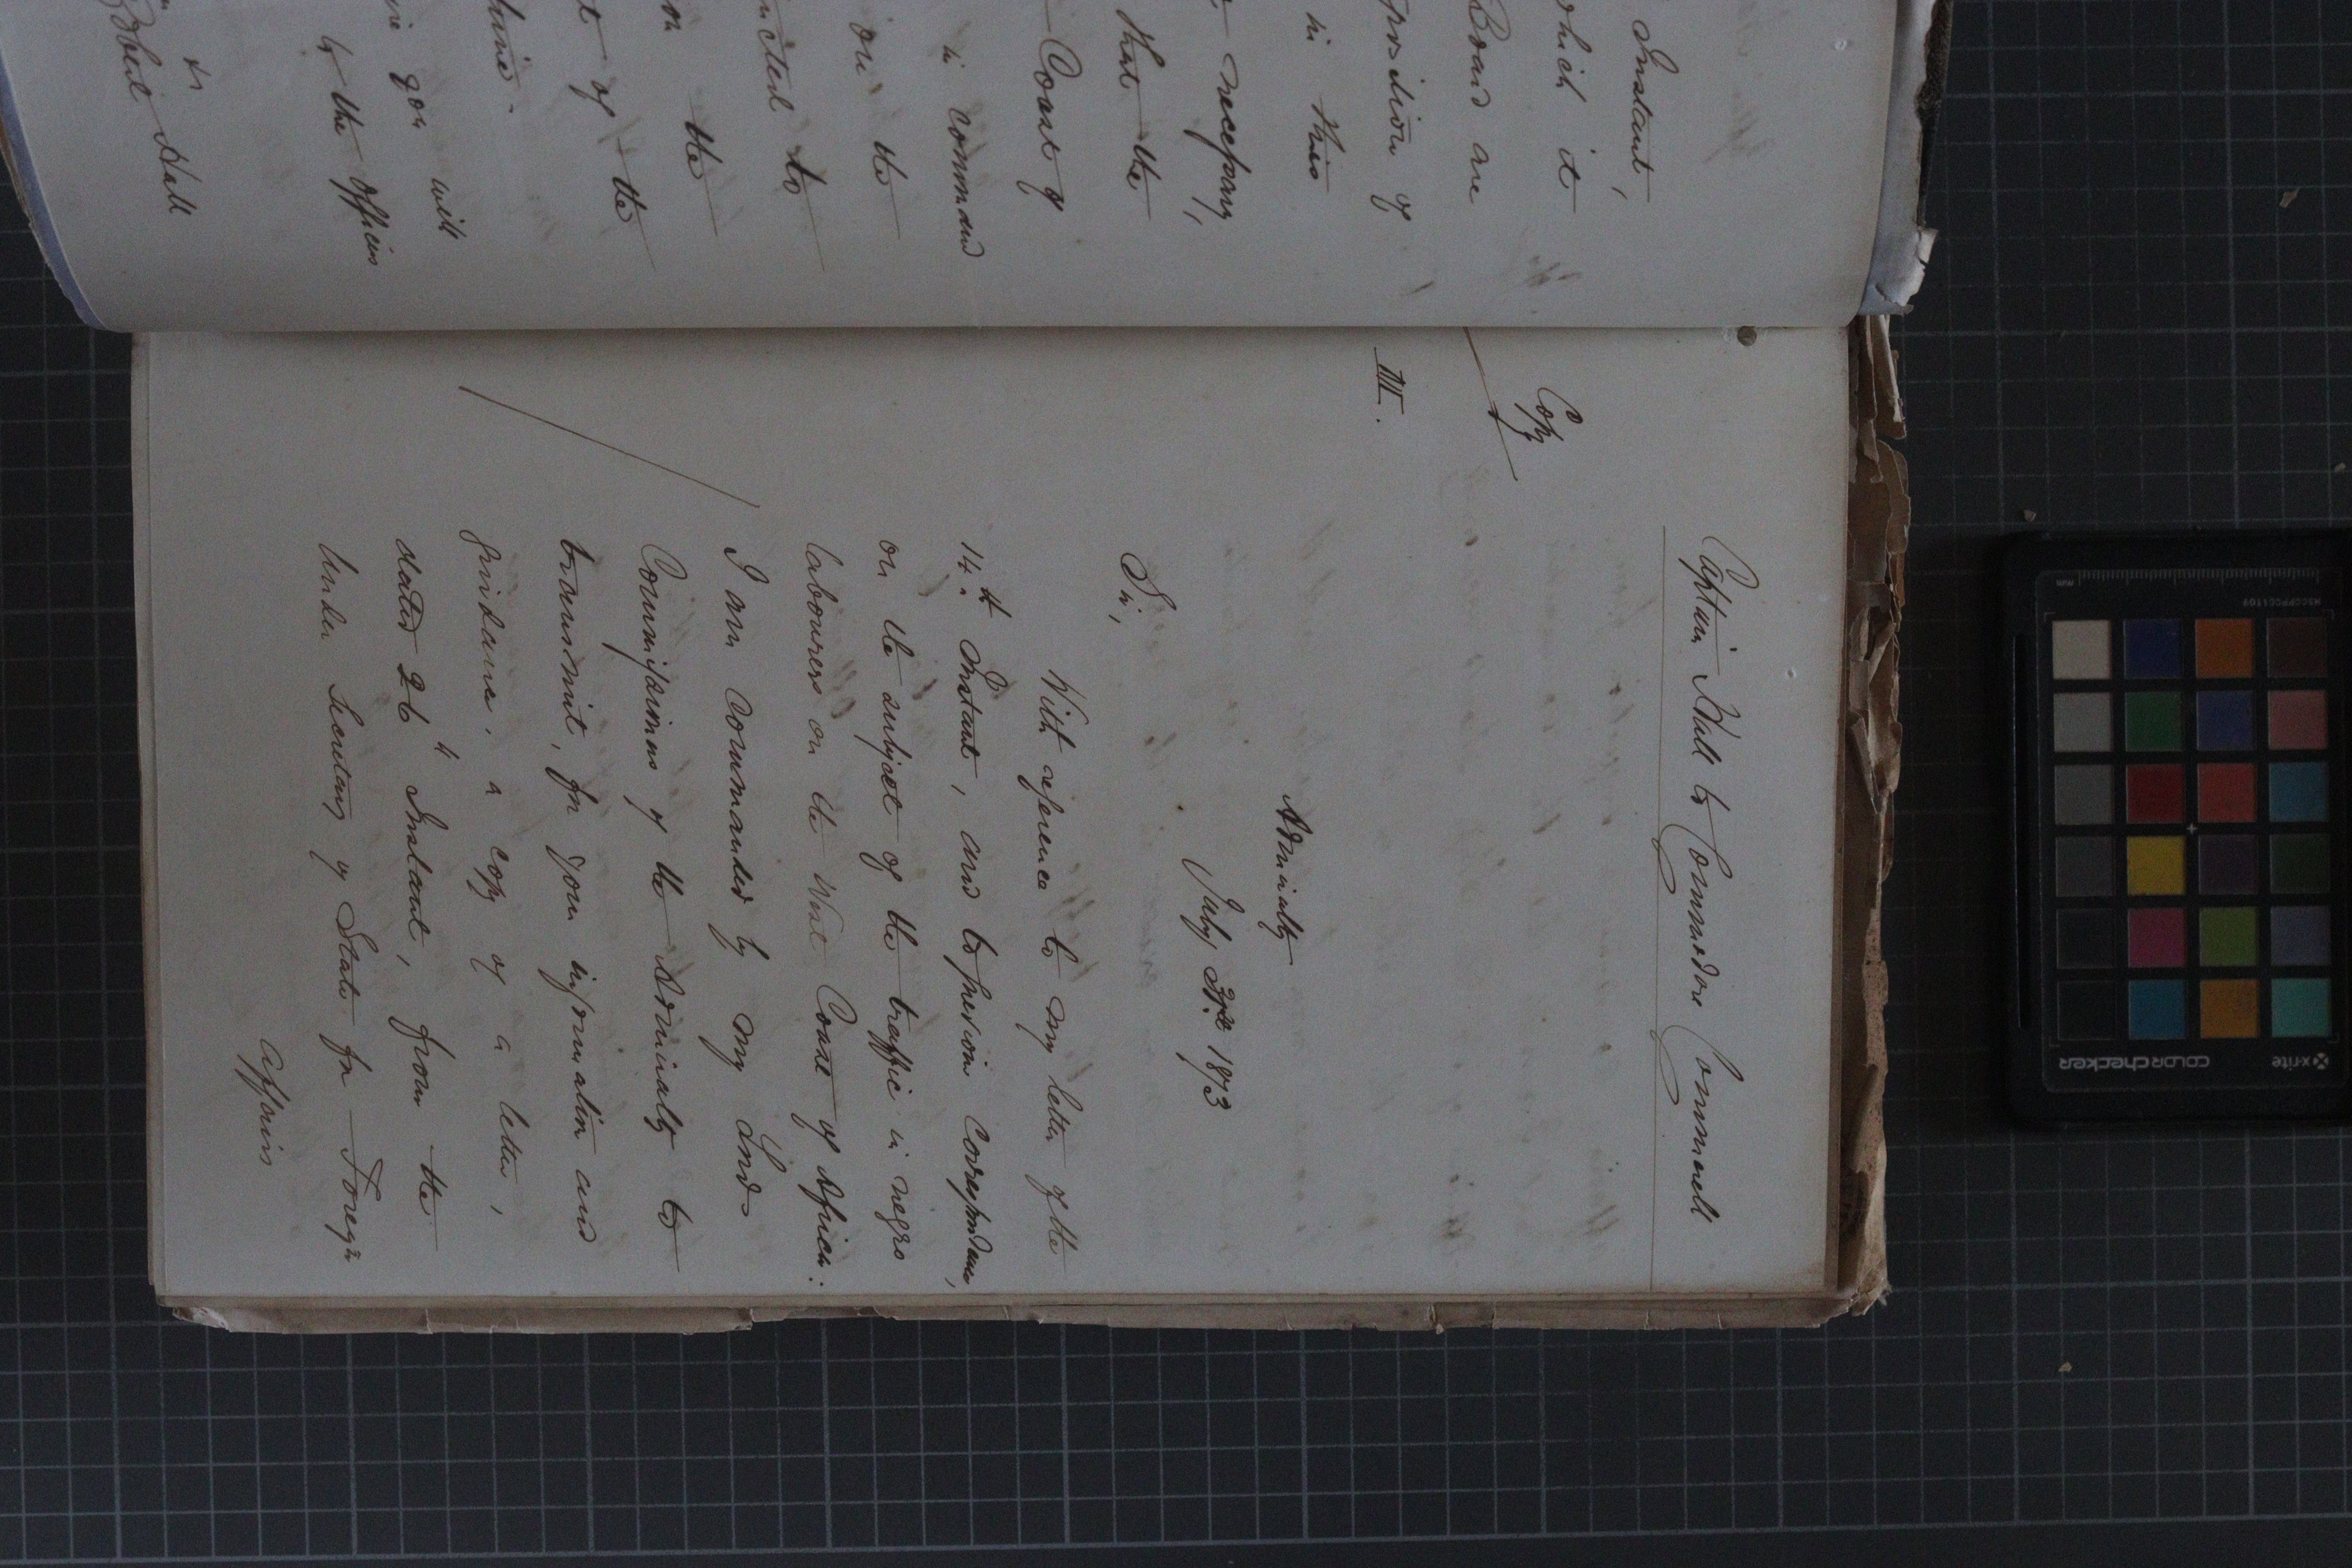 Instant,
which it
Board are
position of
in this
necessary,
that the
Coast of
in command
on the
to
on the
t of the
you will
to the officers
Robert Hall
Captain Hall to Commodore Commerell
Copy
III.
Admiralty
July 1873
Sir,
With reference to my letter of the
14th Instant, and to previous correspondence,
on the subject of the traffic in negro
labourers on the West Coast of Africa:
I am commanded by my Lords
Commissioners of the Admiralty to
transmit, for your information and
guidance, a copy of a letter,
dated 26th Instant, from the
Under Secretary of State for Foreign
Affairs